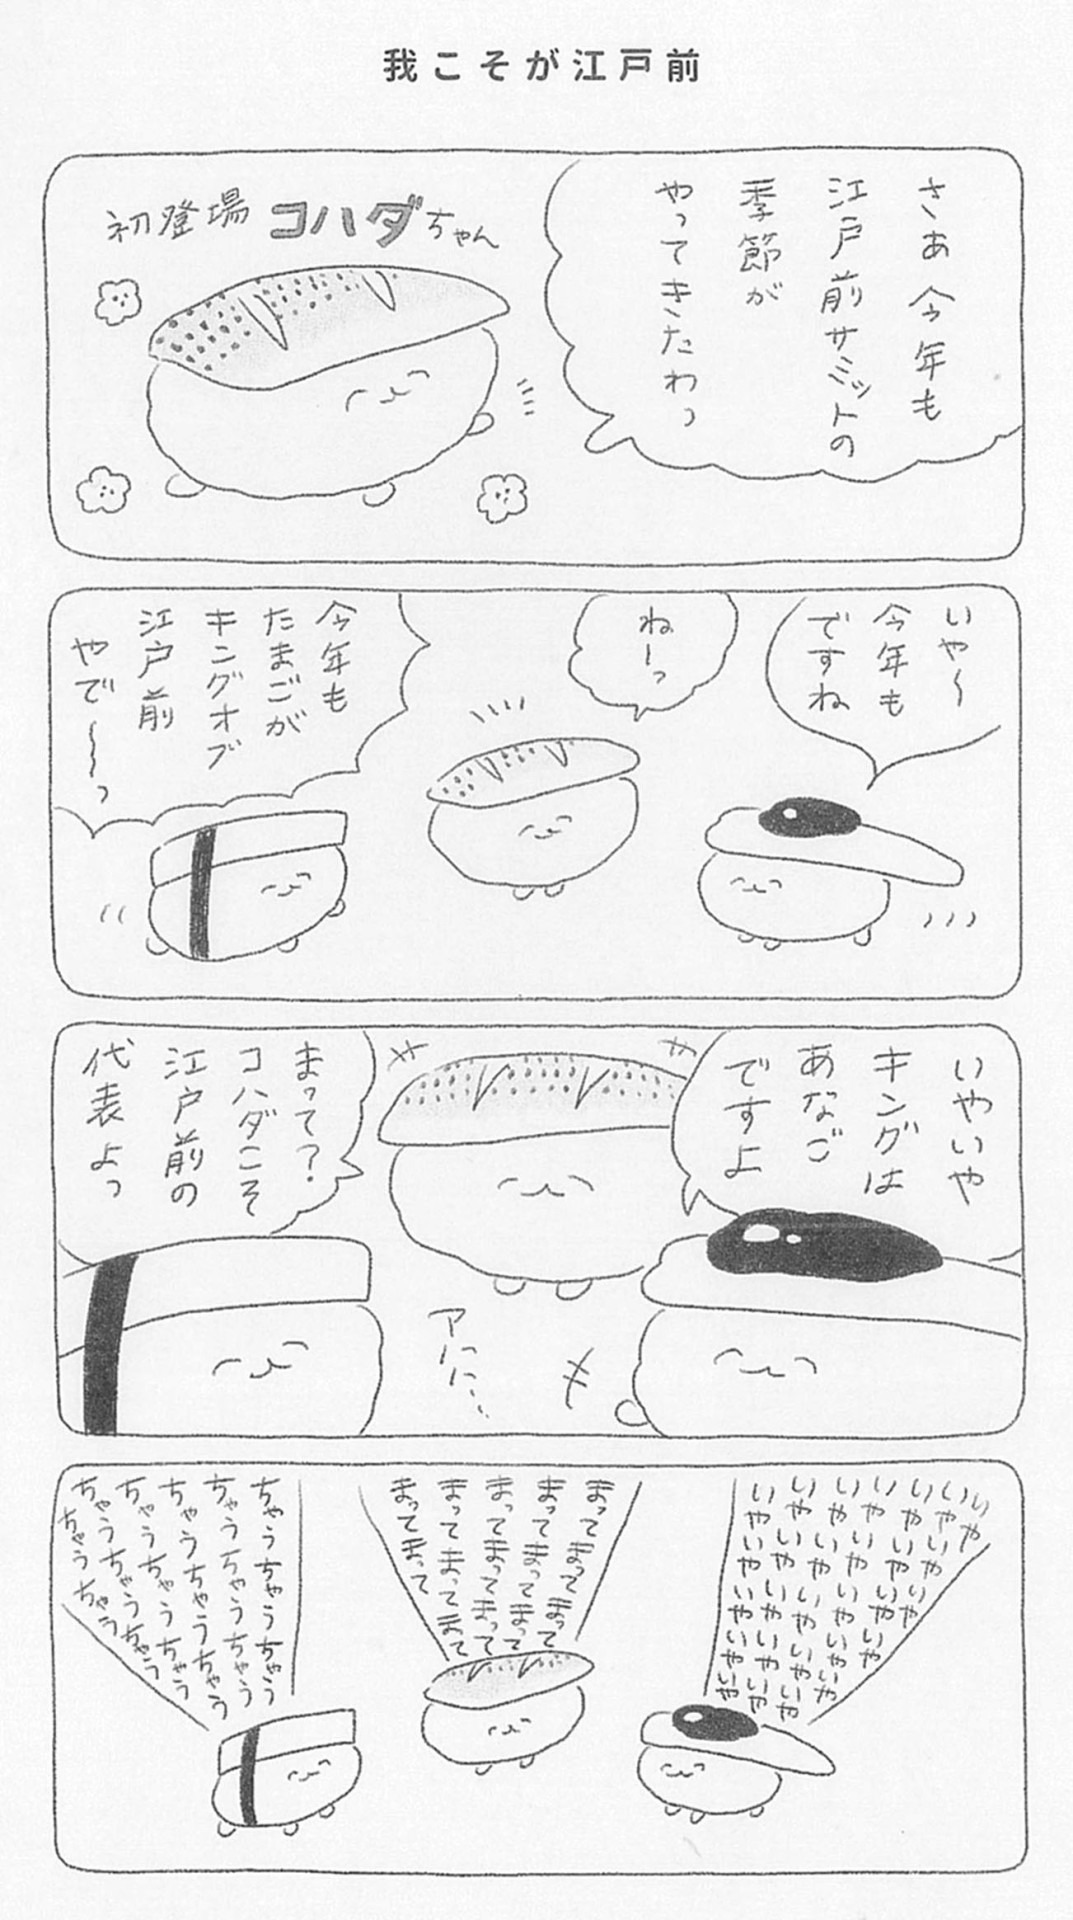 我こそが江戸前
さあ 今年も
江戸前サミットの
季節が
やってきたわっ
初登場 コハダちゃん
いや〜
今年も
ですね
ねーっ
今年も
たまごが
キングオブ
江戸前
やで〜〜っ
いやいや
キングは
あなご
ですよ
まって?
コハダこそ
江戸前の
代表よっ
いやいや
いやいやいや
いやいやいやいや
いやいやいやいやいや
いやいやいやいやいやいや
いやいやいやいやいやいや
いやいやいやいやいや
まってまってまって
まってまってまって
まってまってまって
まってまってまって
まってまって
ちゃうちゃうちゃう
ちゃうちゃうちゃう
ちゃうちゃうちゃう
ちゃうちゃうちゃう
ちゃうちゃうちゃう
ちゃうちゃう